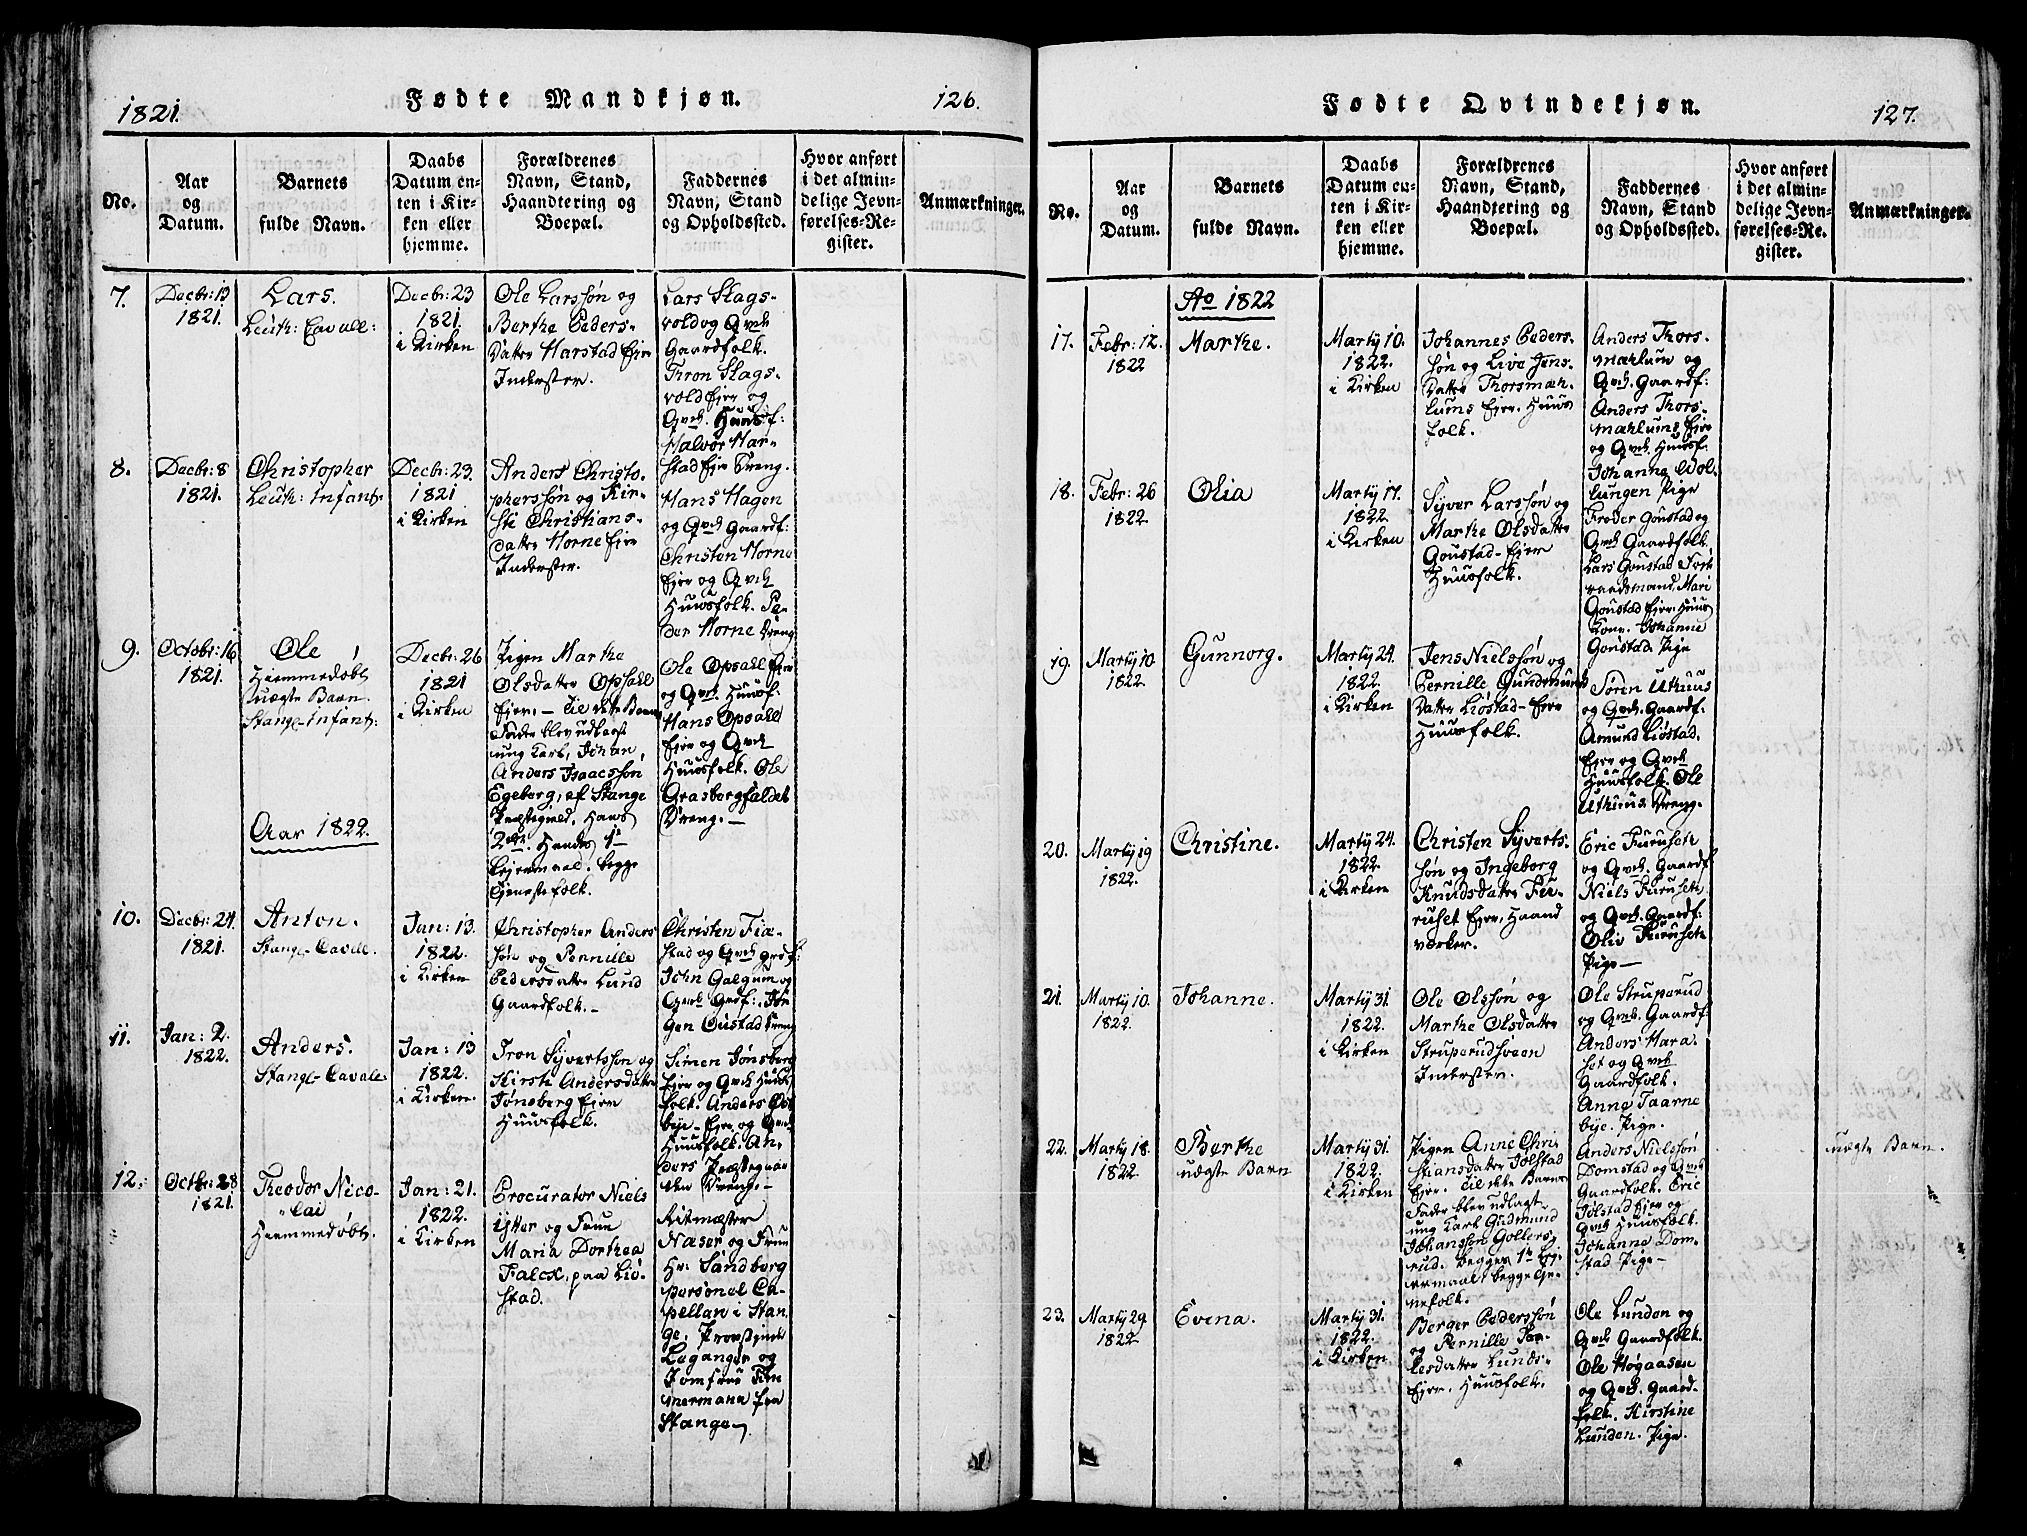 1821.
Fødte Mandkjøn.
126.
No.
Aar
og
Datum.
Barnets
fulde Navn.
Daabs
Datum en-
ten i Kir-
ken eller
hjemme.
Forældrenes
Navn, Stand,
Haandtering og
Boepæl.
Faddernes
Navn, Stand
og Opholdssted.
Hvor anført
i det almin-
delige Jevn-
førelses-Re-
gister.
Anmærkninger.
7.
Decbr: 13
1821.
Lars.
Leuth: Cavall:
Decbr: 23
1821.
i Kirken
Ole Larssøn og
Berthe Peders-
Datter Harstad Eier
Inderster.
Lars Slags-
vold og Qvch
Gaardfolk.
Tron Slags-
vold Eier og
Qvch. Huusf:
Halvor Har-
stad Eier Dreng.
8.
Decbr: 8
1821.
Christopher
Leuth: Infant:
Decbr: 23.
1821
i Kirken
Anders Christo-
pherssøn og Kir-
sti Christians-
datter Horne Eier
Inderster.
Hans Hagen
og Qvch Gaardf:
Christen Horne
Eier og Qvch
Huusfolk. Pe-
der Horne Dreng
9.
Octobr: 16
1821.
Ole
Hiemmedøbt
uægte Barn.
Stange-Infant:
Decbr: 26
1821
i Kirken
Pigen Marthe
Olsdatter Opsall
Eier. – Til dette Barn
Fader blev udlagt
ung Karl, Johan
Anders Isaacssøn
Egeberg, af Stange
Præstegield, Hans
2det. Hendes 1te
Leiermaal. begge
Tjenestefolk.
Ole Opsall Eier
og Qvch. Huusf.
Hans Opsall
Eier og Qvch
Huusfolk. Ole
Grasbergfaldet
Dreng. –
Aar 1822.
10.
Decbr: 24
1821.
Anton.
Stange-Cavall.
Jan: 13.
1822.
i Kirken
Christopher Anders
søn og Pernille
Pedersdatter Lund
Gaardfolk. –
Christen Fia-
stad og Qvch grdf:
John Galgum og
Qvch Grdf:. Jør
gen Oustad Dreng
11.
Jan: 2.
1822.
Anders.
Stange-Cavall
Jan: 13
1822.
i Kirken.
Tron Syvertssøn og
Kirsti Andersdatter
Jønsberg Eier
Huusfolk.
Simen Jønsberg
Eier og Qvch Huus
folk. Anders Øst
bye-Eier og Qvch
Huusfolk. An-
ders Præstegaar
den Dreng. –
12.
Octbr: 28
1821.
Theodor Nico-
lai
Hiemmedøbt.
Jan: 21.
1822.
i Kirken
Procurator Niels
Ytter og Fruu
Maria Dorthea
Falck, paa Liø-
stad.
Ritmæster
Næser og Fruu
Hr: Sandberg
personel Ca-
pellan i Stan-
ge, Provstinde
Leganger og
Jomfrue Tim
mermann fra
Stange.
Fødte Qvindekjøn.
127.
No.
Aar
og
Datum.
Barnets
fulde Navn.
Daabs
Datum en-
ten i Kir-
ken eller
hjemme.
Forældrenes
Navn, Stand,
Haandtering og
Boepæl.
Faddernes
Navn, Stand
og Opholdssted.
Hvor anført
i det almin-
delige Jevn-
førelses-Re-
gister.
Anmærkninger.
Ao 1822
17.
Febr: 12.
1822
Marthe.
Martij 10.
1822.
i Kirken
Johannes Peders-
søn og Live Jens-
Datter Thorsmæh-
lums Eier. Huus
folk.
Anders Thors-
mæhlum og
Qvch. Gaardf:
Anders Thors-
mæhlums Eier
og Qvch. Huusf.
Johanne Wol-
lungen Pige
18.
Febr: 26
1822.
Olia
Martij 17.
1822
i Kirken
Syver Larssøn og
Marthe Olsdatter
Goustad-Eier
Huusfolk.
Frøder Goustad og
Qvch Gaardfolk.
Lars Goustad For
raadsmand, Mari
Goustad Eier. Huus
Kone. Johanne
Goustad Pige
19.
Martij 10.
1822.
Gunnorg.
Martij 24.
1822.
i Kirken
Jens Nielssøn og
Pernille Gundmunds
Datter Liøstad-Eier
Huusfolk.
Søren Uthuus
og Qvch. Gaardf.
Amund Liøstad,
Eier og Qvch
Huusfolk. Ole
Uthuus Dreng.
20.
Martij 19
1822.
Christine.
Martij 24.
1822.
i Kirken
Christen Syverts-
søn og Ingeborg
Knudsdatter Fu-
ruset Eier, Haand
værker.
Eric Furuseth
og Qvch. Gaardf
Niels Furuseth
og Qvch. Gaardf:
Oliv Furuseth
Pige –
21.
Martij 10.
1822.
Johanne.
Martij 31
1822.
i Kirken
Ole Olssøn og
Marthe Olsdatter
Struperudsveen
Inderster.
Ole Struperud
og Qvch. Gaardf
Anders Hara
set og Qvch
Gaardfolk.
Anne Taarne
bye. Pige.
22.
Martij 18.
1822.
Berthe
uægte Barn
Martij 31.
1822.
i Kirken
Pigen Anne Chri
stiansdatter Jølstad
Eier. Til dette Barns
Fader blev udlagt
ung Karl Gudmund
Johanssøn Gollers-
rud. Begges 1te Lej-
ermaal. begge tje-
nefolk.
Anders Nielssøn
Domstad og Qvch
Gaardfolk. Eric
Jølstad Eier og
Qvch Huusfolk.
Johanne Dom-
stad Pige –
uægte Barn.
23.
Martij 29.
1822.
Evena.
Martij 31.
1822.
i Kirken
Berger Pederssøn
og Pernille Pe-
dersdatter Lunds-
Eier. Huusfolk.
Ole Lunden og
Qvch Gaardfolk.
Ole Høgaasen
og Qvch. Gaard-
folk. Kirstine
Lunden. Pige.